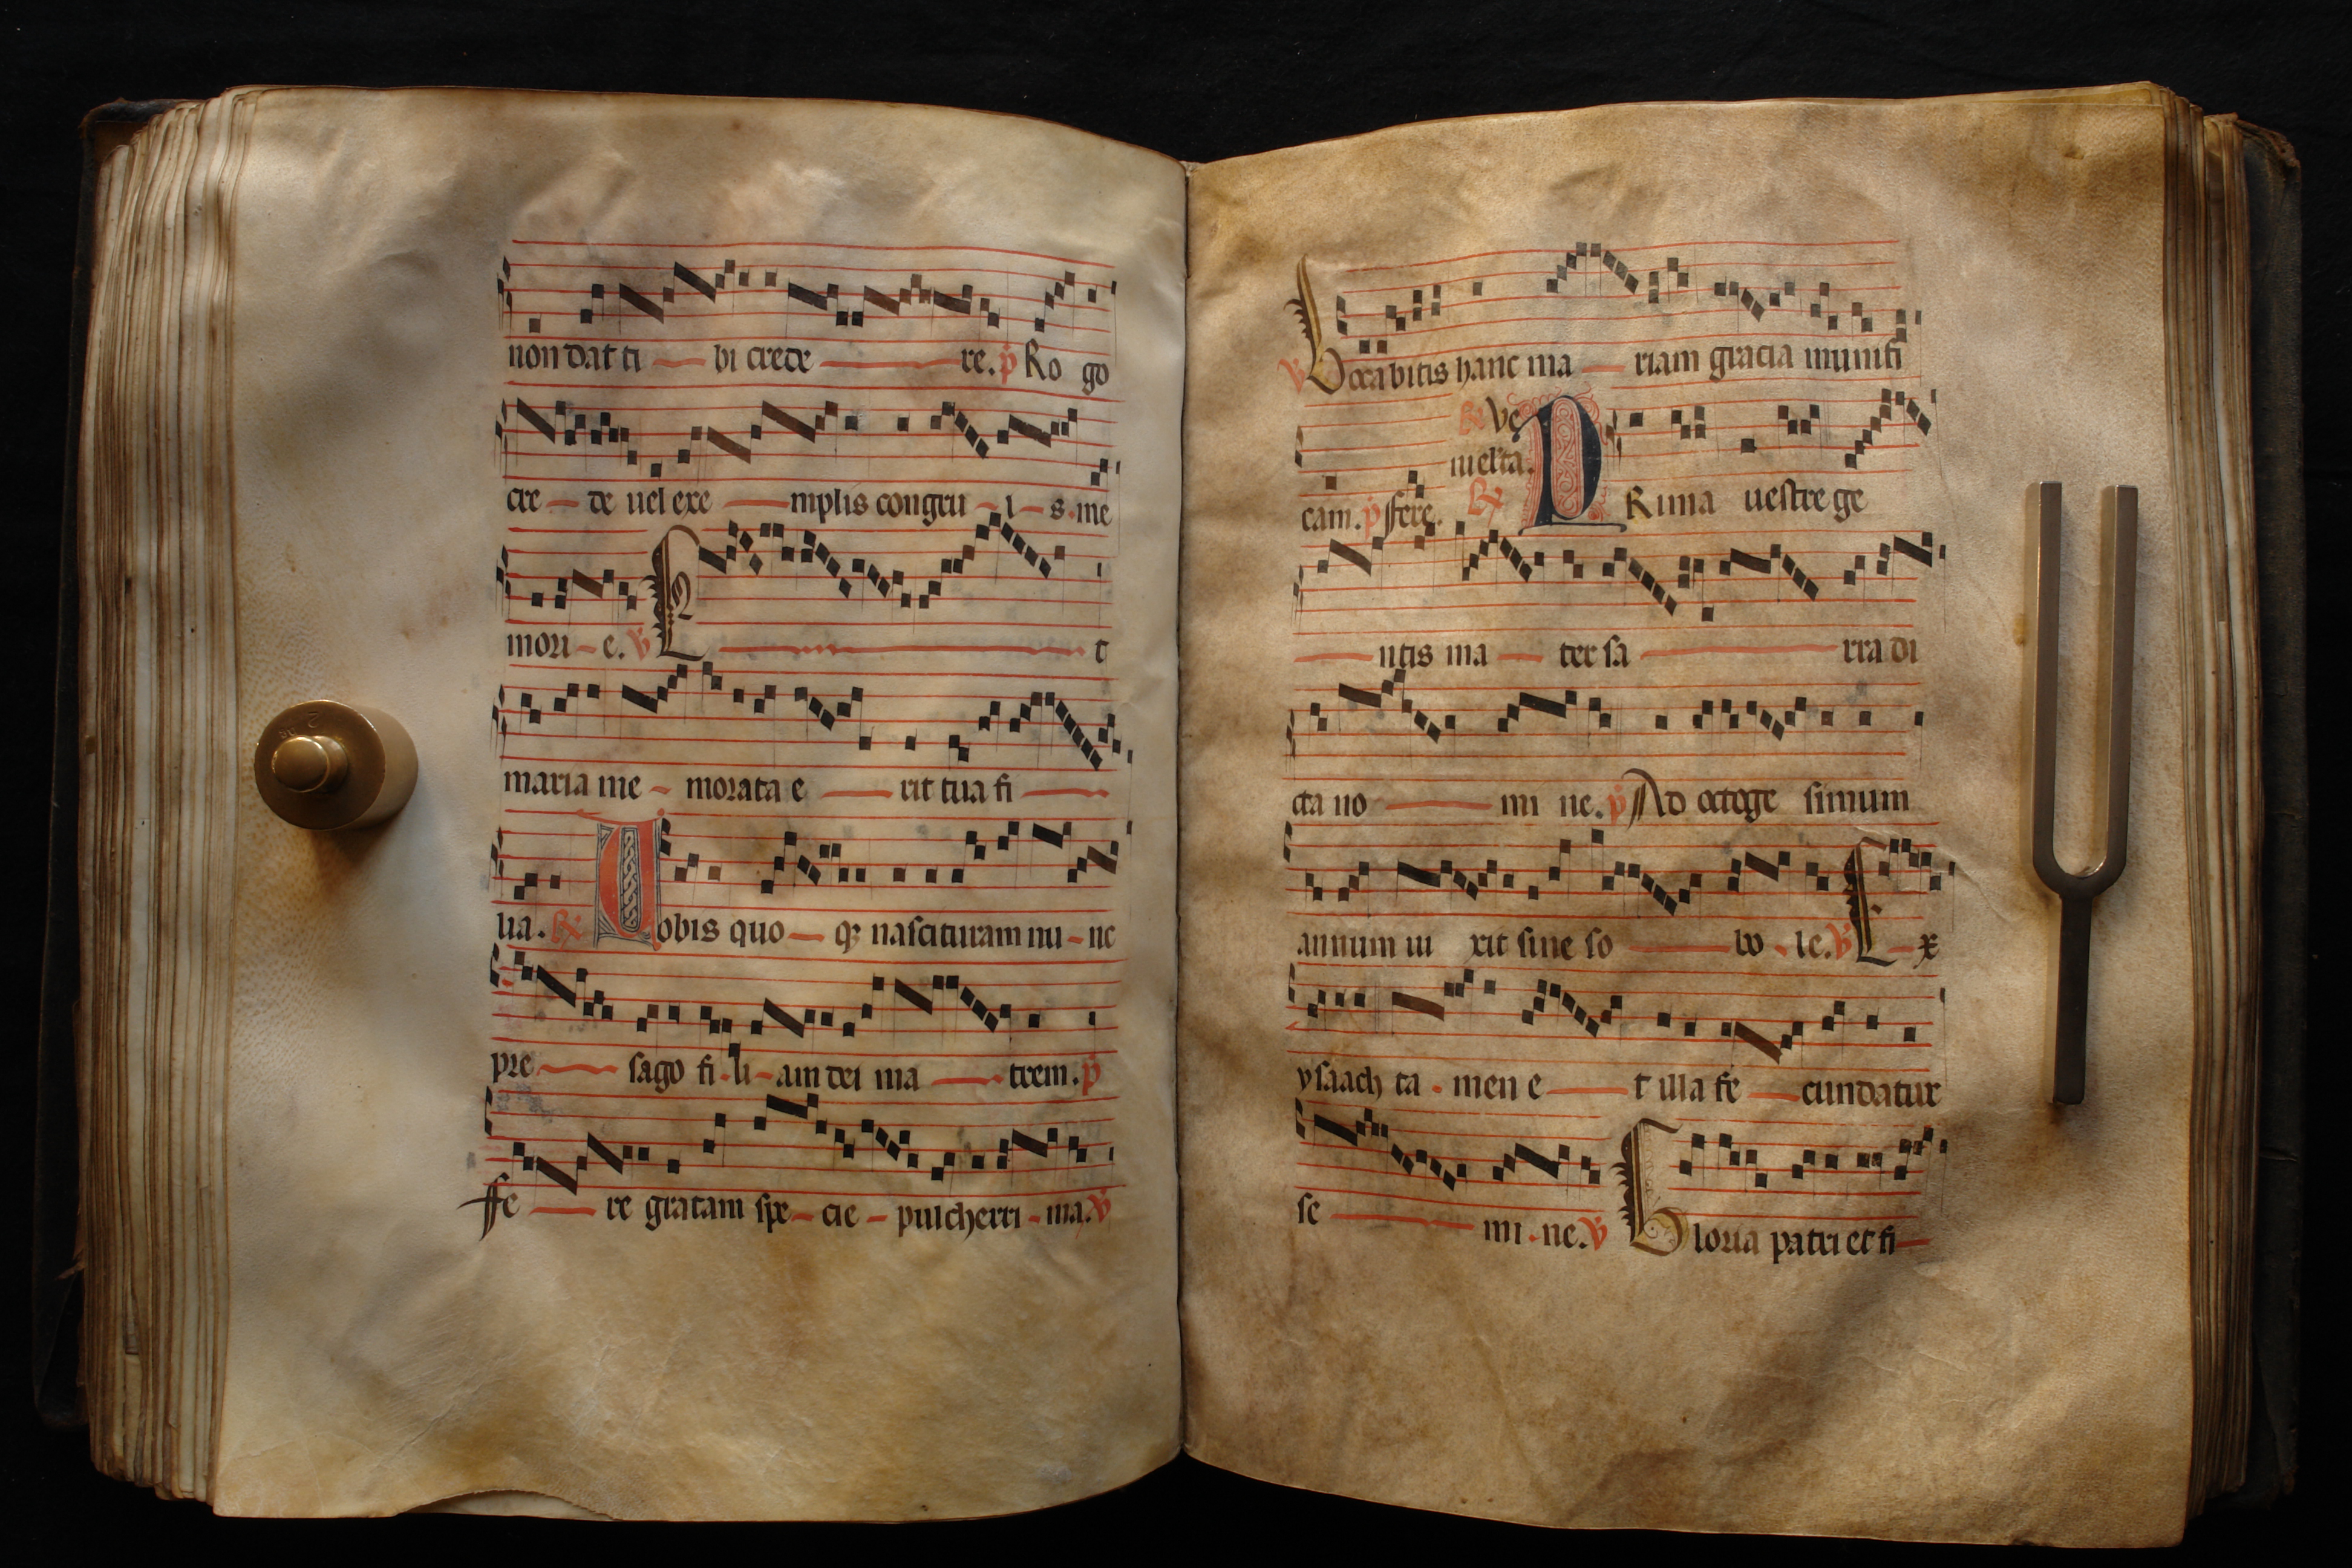 non dat ti bi crede re. p Ro go
cre de uel exe mplis congru i s. me
mori e. v E t
maria me morata e rit tua fi
lia. R Uobis quo q nascituram nu nc
pre sago fi li am dei ma trem. p
ffe re gratam spe cie pulcherri ma. v
v Vocabitis hanc ma riam gracia munifi
R Ve
niet ta.
cam. p ffere. R PRima uestre ge
ntis ma ter sa rra di
cta no mi ne. p Ad octoge simum
annum ui xit sine so bo le. v E x
ysaach ta men e t illa fe cundatur
se mi ne. v Gloria patri et fi